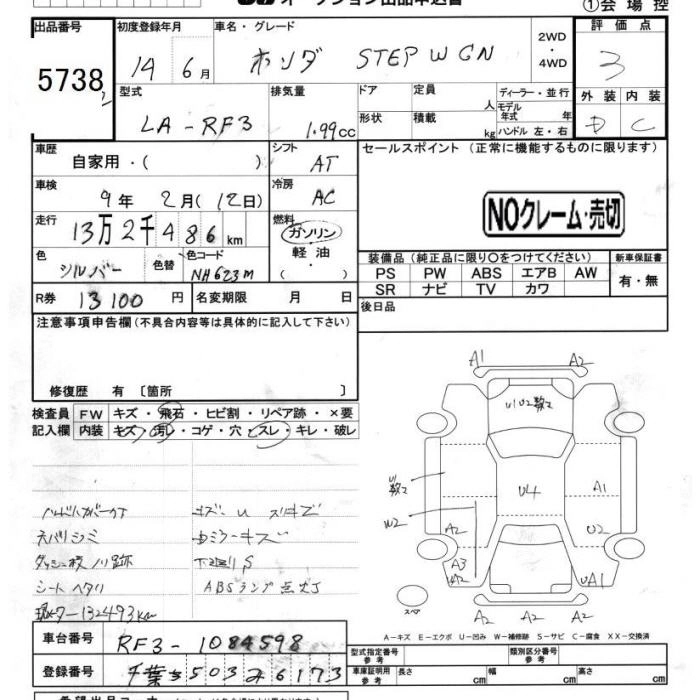 オークション出品申込書
①会場控
出品番号 初度登録年月 車名・グレード 評価点
5738 14 6月 ホンダ STEP WGN 2WD・4WD 3
型式 排気量 ドア 定員 人 ディーラー・並行 外装 内装
LA-RF3 1.99cc 形状 積載 kg モデル年式 年 ハンドル 左・右 D C
車歴 シフト セールスポイント (正常に機能するものに限ります)
自家用・( ) AT
車検 冷房
9年 2月(12日) AC NOクレーム・売切
走行 燃料
13万2千486km ガソリン・軽油・( )
色 色替 色コード 装備品 (純正品に限り○をつけてください) 新車保証書
シルバー NH623M PS PW ABS エアB AW 有・無
SR ナビ TV カワ
R券 13100円 名変期限 月 日 後日品
注意事項申告欄 (不具合内容等は具体的に記入して下さい)
修復歴 有 〔箇所 〕
検査員 FW キズ・飛石・ヒビ割・リペア跡・×要
記入欄 内装 キズ・汚れ・コゲ・穴・スレ・キレ・破レ
A1 A2
U1U2数2
U1数2 U4 A1
W2 A2 U2
A3 UA1
A2 A2 A2
スペア
キズ U スリキズ
ネバリシミ 左ミラーキズ
ダッシュ板ノリ跡 下廻りS
シートヘタリ ABSランプ点灯
132493km
A-キズ E-エクボ U-凹み W-補修跡 S-サビ C-腐食 XX-交換済
車台番号 RF3-1084598
型式指定番号 参考 類別区分番号 参考
登録番号 千葉 503 6173
車庫証明用 参考 長さ 幅 高さ